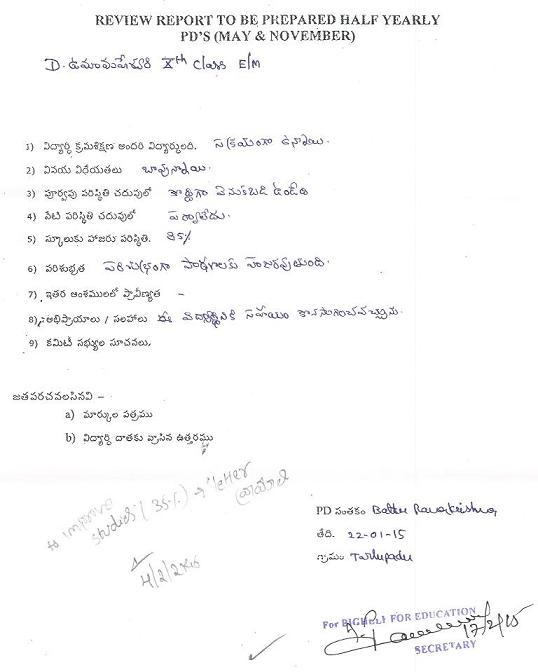 REVIEW REPORT TO BE PREPARED HALF YEARLY
PD'S (MAY & NOVEMBER)
D. ఉమామహేశ్వరి Xth Class E/M
1) విద్యార్థి క్రమశిక్షణ అందరి విద్యార్థులది. సక్రమంగా ఉన్నాయి.
2) వినయ విధేయతలు బావున్నాయి.
3) పూర్వపు పరిస్థితి చదువులో కాస్త వెనుకబడి ఉండేది
4) నేటి పరిస్థితి చదువులో పర్వాలేదు.
5) స్కూలుకు హాజరు పరిస్థితి. 85%
6) పరిశుభ్రత పరిశుభ్రంగా పాఠశాలకు హాజరవుతుంది.
7) ఇతర ఆంశములలో ప్రావీణ్యత -
8) అభిప్రాయాలు / సలహాలు ఈ విద్యార్థినికి సహాయం కొనసాగించవచ్చును.
9) కమిటీ సభ్యుల సూచనలు.
జతపరచవలసినవి –
a) మార్కుల పత్రము
b) విద్యార్థి దాతకు వ్రాసిన ఉత్తరము
to improve
studies (35%) → letter
వ్రాయాలి
4/2/2015
PD సంతకం Battu Ramakrishna
తేది. 22-01-15
గ్రామం Tarlupadu
For BIGHELP FOR EDUCATION
17/2/15
SECRETARY